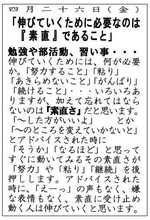 四月二十六日(金)
「伸びていくために必要なのは
『素直』であること」
勉強や部活動、習い事・・・
伸びていくためには、何が必要か。「努力すること」「粘り」
「あきらめないこと」「がんばり」
「続けること」・・・いろいろありますが、加えて忘れてはならないのは『素直さ』だと思います。
「~した方がいいよ」とか
「~のところを変えていかないと」
とアドバイスされた時に
「そうか」「なるほど」と思ってすぐに動いてみるその素直さが
「努力」や「粘り」「継続」を後押しします。アドバイスされた時に、「えーっ」の声もなく、嫌な表情もなく、素直に受け止め動く人は伸びていくと思います。